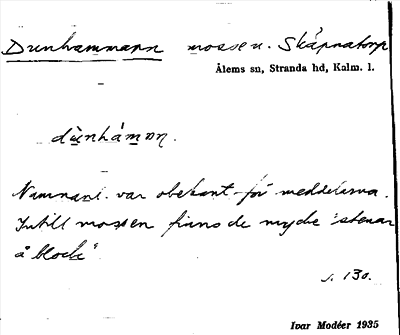 Dunhammarn mossen. Skäpnatorp
Ålems sn, Stranda hd, Kalm. l.
dùnhámɒn.
Namnanl. var obekant för meddelarna.
Intill mossen finns de mycke "stenar
å block"
s. 130.
Ivar Modéer 1935